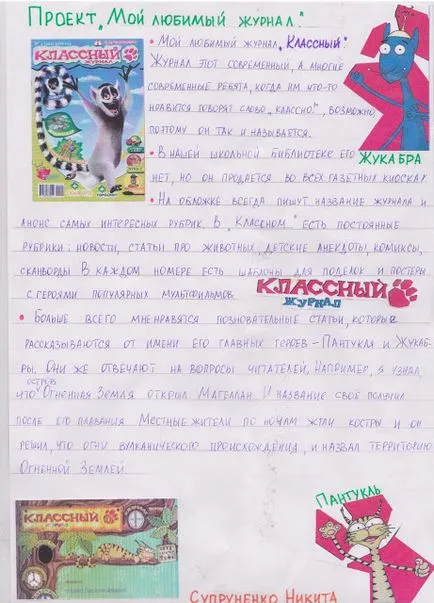 Проект „Мой любимый журнал."
• Мой любимый журнал „Классный".
Журнал этот современный, а многие
современные ребята, когда им что-то
нравится говорят слово „классно!", возможно,
поэтому он так и называется.
• В нашей школьной библиотеке его
нет, но он продаётся во всех газетных киосках.
• На обложке всегда пишут название журнала и
анонс самых интересных рубрик. В „Классном" есть постоянные
рубрики: новости, статьи про животных, детские анекдоты, комиксы,
сканворды В каждом номере есть шаблоны для поделок и постеры
с героями популярных мультфильмов.
• Больше всего мне нравятся позновательные статьи, которые
рассказываются от имени его главных героев – Пантукля и Жукаб-
ры. Они же отвечают на вопросы читателей, Например, я узнал,
что остров Огненная Земля открыл Магеллан. И название своё получил
после его плавания Местные жители по ночам жгли костры и он
решил, что огни вулканического происхождения, и назвал территорию
Огненной Землей.
КЛАССНЫЙ
ЖУРНАЛ
Жукабра
КЛАССНЫЙ
ЖУРНАЛ
КЛАССНЫЙ
ЖУРНАЛ
Пантукль
Супруненко Никита